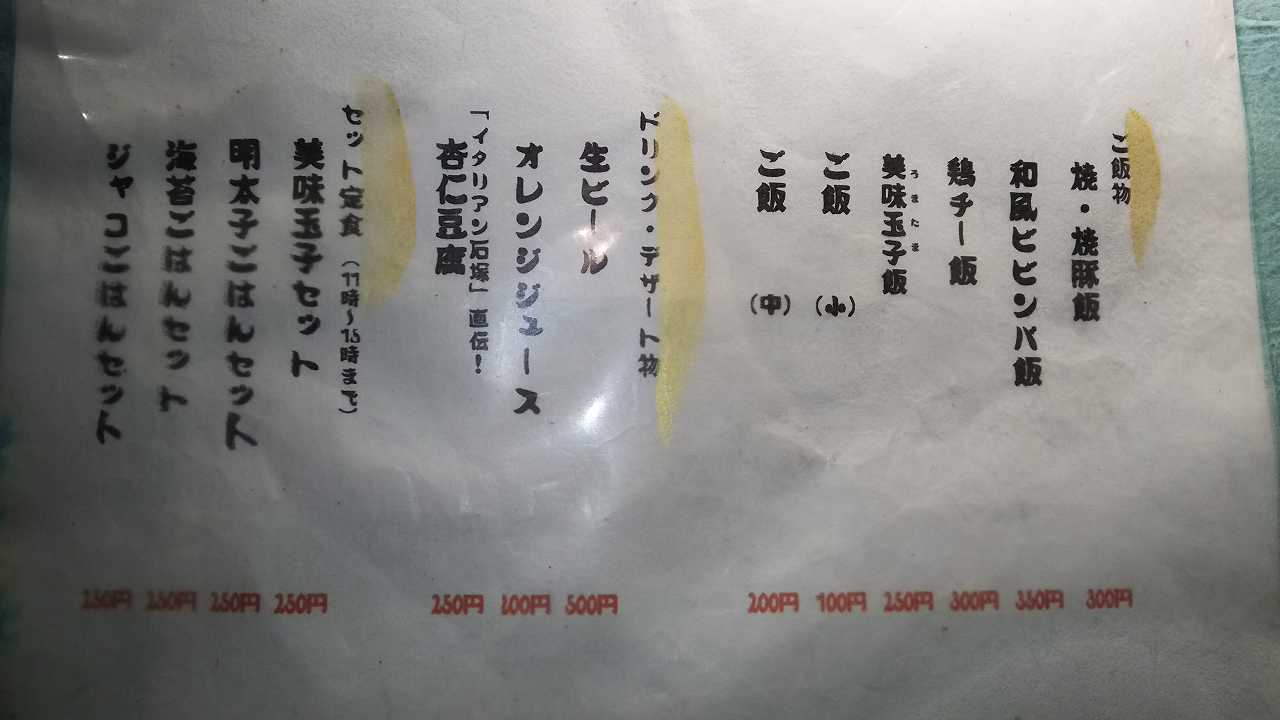 ご飯物
焼・焼豚飯 300円
和風ビビンバ飯 350円
鶏チー飯 300円
美味玉子飯 250円
うまたま
ご飯 (小) 100円
ご飯 (中) 200円
ドリンク・デザート物
生ビール 500円
オレンジジュース 200円
「イタリアン石塚」直伝!
杏仁豆腐 250円
セット定食 (11時~15時まで)
美味玉子セット 250円
明太子ごはんセット 250円
海苔ごはんセット 250円
ジャコごはんセット 250円